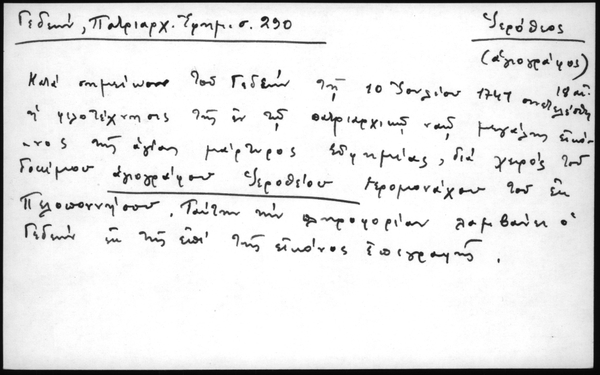 Γεδεών, Πατριαρχ. Ἐφημ. σ. 290
Ἱερόθεος
(ἁγιογράφος)
18 αἰ.
Κατά σημείωσιν τοῦ Γεδεών τῇ 10 Ἰουλίου 1747 συνετελέσθη
ἡ φιλοτέχνησις τῆς ἐν τῷ πατριαρχικῷ ναῷ μεγάλης εἰκό-
νος τῆς ἁγίας μάρτυρος Εὐφημίας, διά χειρός τοῦ
δοκίμου ἁγιογράφου Ἱεροθέου ἱερομονάχου τοῦ ἐκ
Πελοποννήσου. Ταύτην τήν πληροφορίαν λαμβάνει ὁ
Γεδεών ἐκ τῆς ἐπί τῆς εἰκόνος ἐπιγραφῆς.